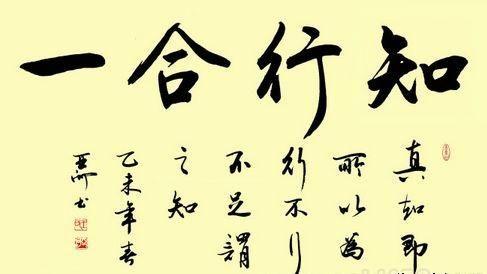 知行合一
真知即
所以為
行不行
不足謂
之知
乙未年春